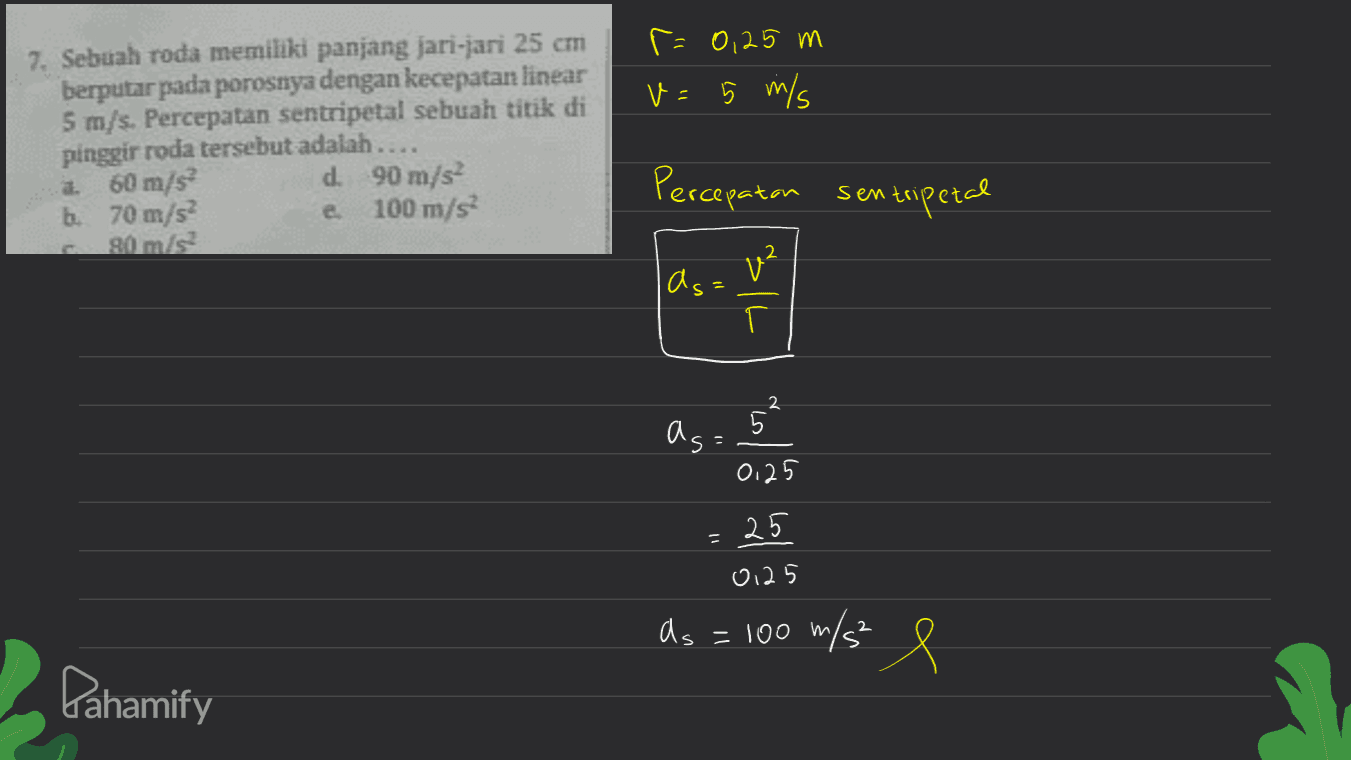 7. Sebuah roda memiliki panjang jari-jari 25 cm
berputar pada porosnya dengan kecepatan linear
5 m/s. Percepatan sentripetal sebuah titik di
pinggir roda tersebut adalah ....
a. 60 m/s² d. 90 m/s²
b. 70 m/s² e. 100 m/s²
c. 80 m/s²
r = 0,25 m
v = 5 m/s
Percepatan sentripetal
as = v²
r
as = 5²
0,25
= 25
0,25
as = 100 m/s²
Pahamify